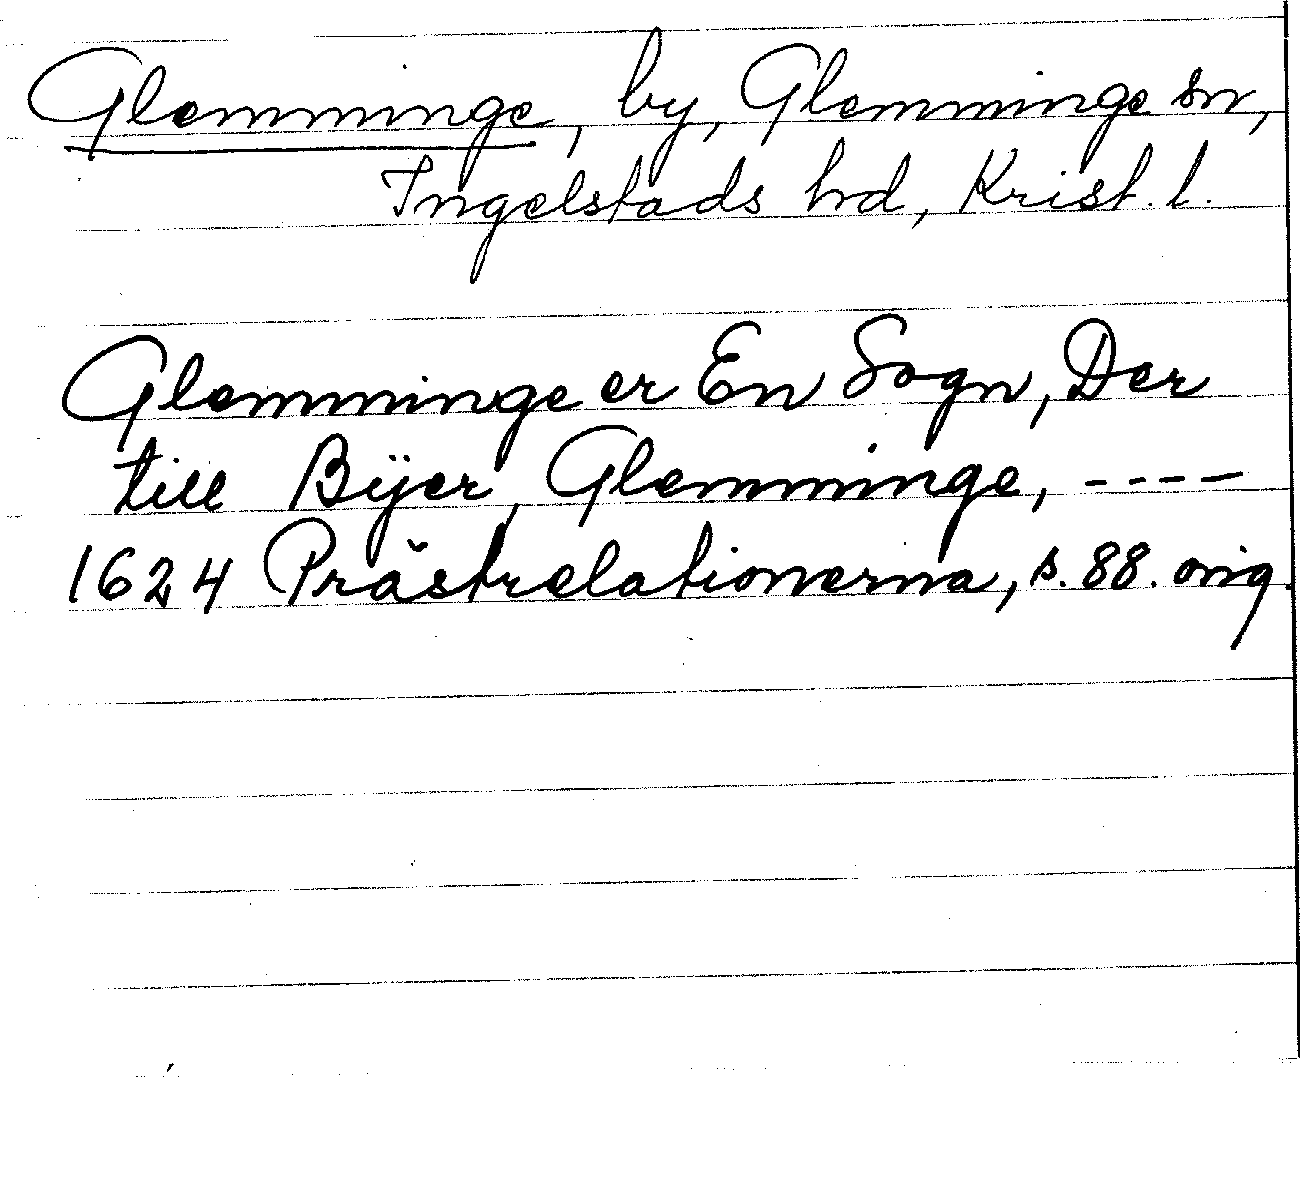 Glemminge, by, Glemminge sn,
Ingelstads hd, Krist. l.
Glemminge er En Sogn, Der
till Bÿer, Glemminge, ----
1624 Prästrelationerna, s. 88. orig.